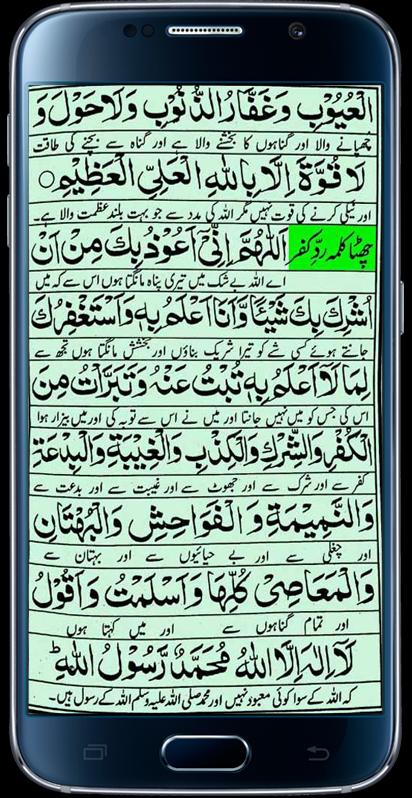 الْعُيُوْبِ وَغَفَّارُ الذُّنُوْبِ وَلَا حَوْلَ وَ
چھپانے والا اور گناہوں کا بخشنے والا ہے اور گناہ سے بچنے کی طاقت
لَا قُوَّةَ اِلَّا بِاللّٰهِ الْعَلِيِّ الْعَظِيْمِ ○
اور نیکی کرنے کی قوت نہیں مگر اللہ کی مدد سے جو بہت بلند عظمت والا ہے۔
چھٹا کلمہ ردِّ کفر اَللّٰهُمَّ اِنِّىْٓ اَعُوْذُ بِكَ مِنْ اَنْ
اے اللہ بے شک میں تیری پناہ مانگتا ہوں اس سے کہ میں
اُشْرِكَ بِكَ شَيْئًا وَّاَنَا اَعْلَمُ بِهٖ وَاَسْتَغْفِرُكَ
جانتے ہوئے کسی شے کو تیرا شریک بناؤں اور بخشش مانگتا ہوں تجھ سے
لِمَا لَآ اَعْلَمُ بِهٖ تُبْتُ عَنْهُ وَتَبَرَّاْتُ مِنَ
اس کی جس کو میں نہیں جانتا اور میں نے اس سے توبہ کی اور میں بیزار ہوا
الْكُفْرِ وَالشِّرْكِ وَالْكِذْبِ وَالْغِيْبَةِ وَالْبِدْعَةِ
کفر سے اور شرک سے اور جھوٹ سے اور غیبت سے اور بدعت سے
وَالنَّمِيْمَةِ وَ الْفَوَاحِشِ وَالْبُهْتَانِ
اور چغلی سے اور بے حیائیوں سے اور بہتان سے
وَالْمَعَاصِىْ كُلِّهَا وَاَسْلَمْتُ وَاَقُوْلُ
اور تمام گناہوں سے اور میں کہتا ہوں
لَآ اِلٰهَ اِلَّا اللّٰهُ مُحَمَّدٌ رَّسُوْلُ اللّٰهِ ؕ
کہ اللہ کے سوا کوئی معبود نہیں اور محمد صلی اللہ علیہ وسلم اللہ کے رسول ہیں۔